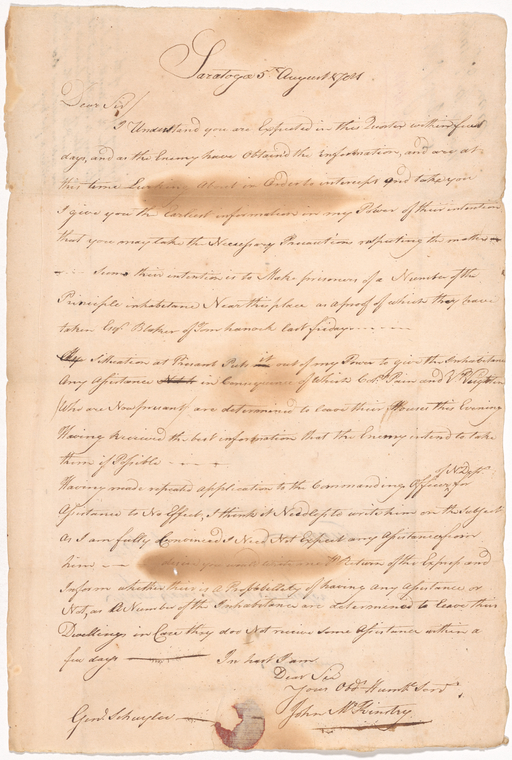 Saratoga 5th August 1781
Dear Sir/
I Understand you are Expected in this Quater within few
days, and as the Enemy have Obtaind the Information, and are at
this time Lurking About in Order to intercept and take you
I give you the Earliest information in my Power of their intention
that you may take the Necessary Precautions respecting the matter
their intention is to Make prisoners of a Number of the
Principle inhabitans Near this place as a proof of which they have
taken Esqr. Blaker of last friday
Situation at Present Puts it out of my Power to give the Inhabitans
Any Assistance in Consequence of Which Colo. and V Veighten
/Who are Now present/ are determined to leave their Houses this Evening
Having Received the best information that the Enemy intend to take
them if Possible
Having made repeated application to the Commanding Officer of N. Dept. for
Assistance to No Effect, I think it Needless to write him on the Subject
As I am fully Convinced I Need Not Expect any Assistance from
him you would Return of the Express and
Inform whether their is a Probabillety of having Any Assistance or
Not, as a Number of the Inhabitance are determined to leave their
Dwellings in Case they doe Not receive some Assistance within a
few days In hast I am
Dear Sir
Your Obdt. Humbl. Servt.
John McKinstry
Genl. Schuyler